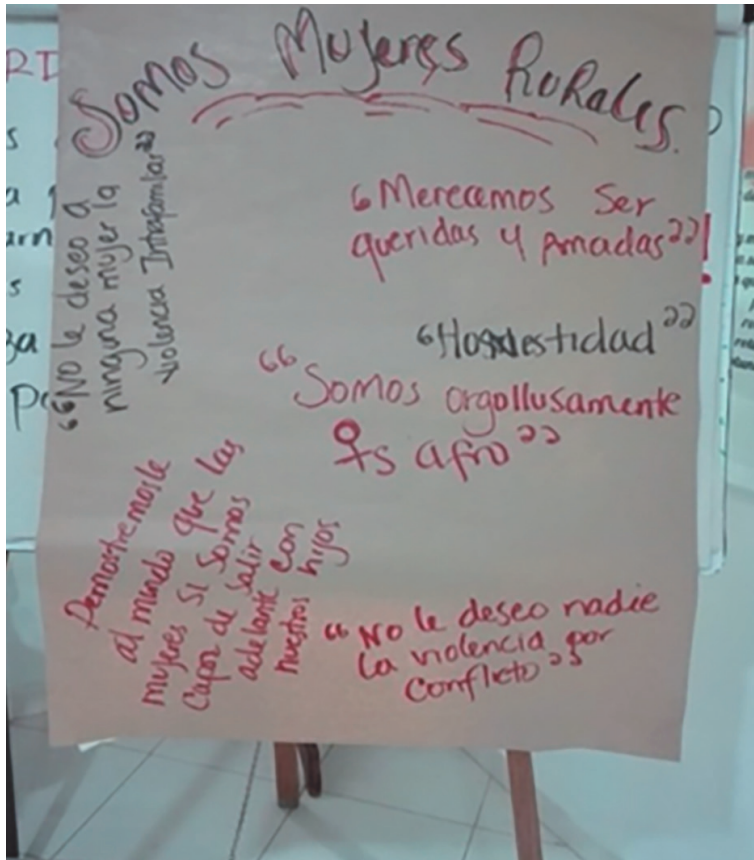 Somos Mujeres Rurales.
“No le deseo a
ninguna mujer la
violencia Intrafamiliar”
“Merecemos Ser
queridas y Amadas”!
“Honestidad”
“Somos orgollusamente
♀s afro”
Demostremosle
al mundo que las
mujeres si somos
Capaz de salir
adelante con
nuestros hijos
“No le deseo nadie
la violencia por
conflicto”